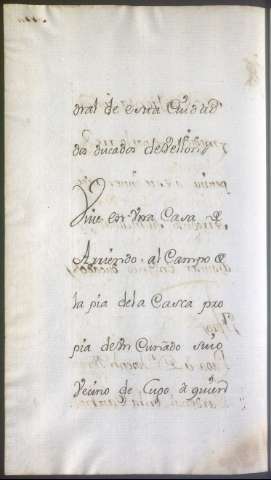 dral de esta Ciudad
dos ducados de Vellon
Vive en Una Casa, q̃
Arriendo, al Campo de
la pia dela Casca pro
pia de Un Cuñado suio
Vecino de Lugo à quien